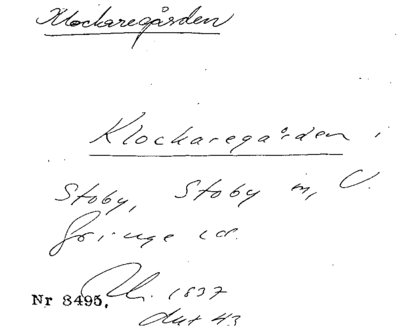 Klockaregården
Klockaregården i
Stoby, Stoby m, V.
Göinge
Nr 3495. 1937